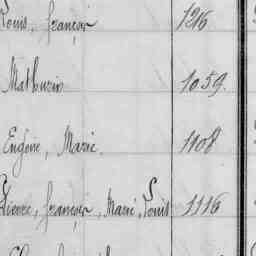 Louis, françois 1216
Mathurin 1059.
Eugène, Marie 1108
Pierre, françois, Marie, Louis 1116